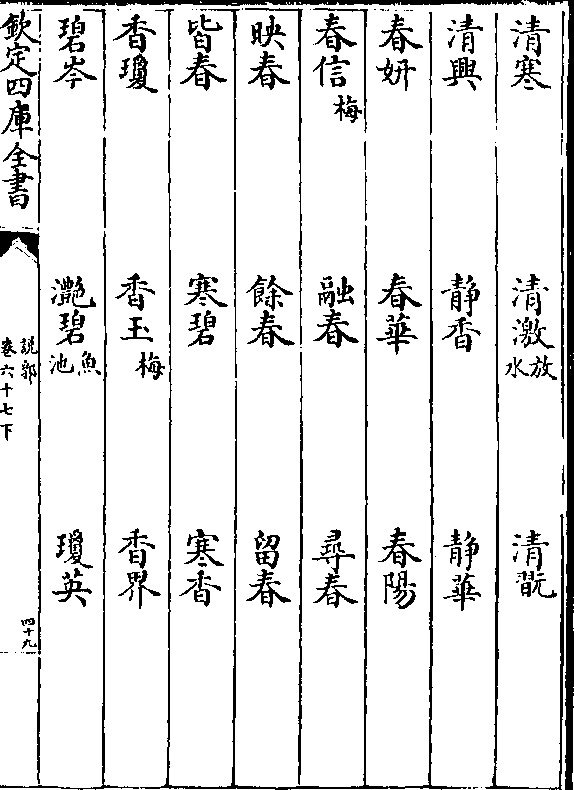 清寒 清激放水 清翫
清興 静香 静華
春妍 春華 春陽
春信梅 融春 尋春
映春 餘春 留春
皆春 寒碧 寒香
香瓊 香玉梅 香界
碧岑 灔碧魚池 瓊英
欽定四庫全書
說郛
卷六十七下
四十九